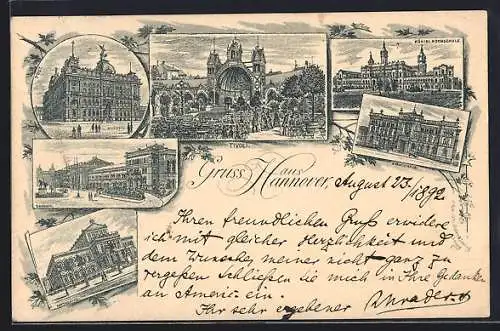 KÖNIGL. HOCHSCHULE
TIVOLI
Gruss aus Hannover, August 23/1892
Ihren freundlichen Gruß erwidere
ich mit gleicher Herzlichkeit und
dem Wunsche, meiner nicht ganz zu
vergeßen. Schließen Sie mich in Ihre Gedanken
an Americ ein.
Ihr sehr ergebener Schrader